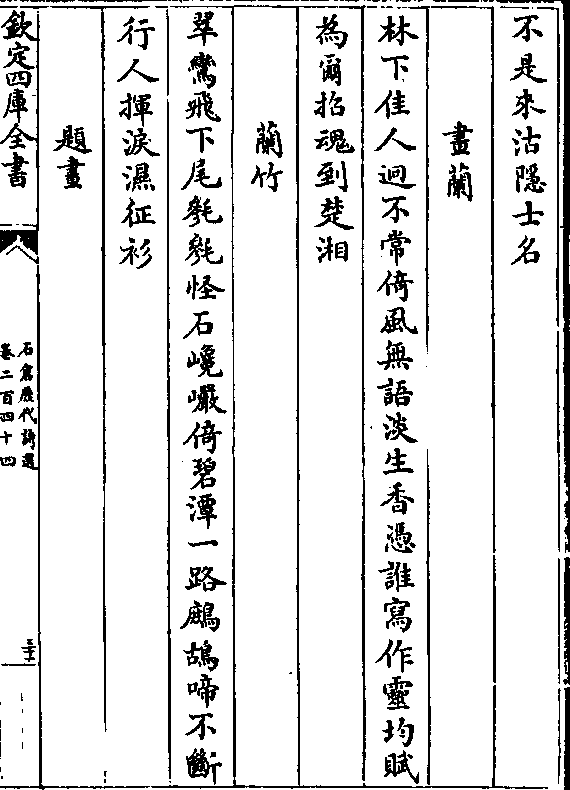 不是來沽隱士名
畫蘭
林下佳人逈不常倚風無語淡生香憑誰寫作靈均賦
為爾招魂到楚湘
蘭竹
翠鸞飛下尾毿毿怪石巉巗倚碧潭一路鷓鴣啼不斷
行人揮淚濕征衫
題畫
欽定四庫全書
石倉歷代詩選
卷二百四十四